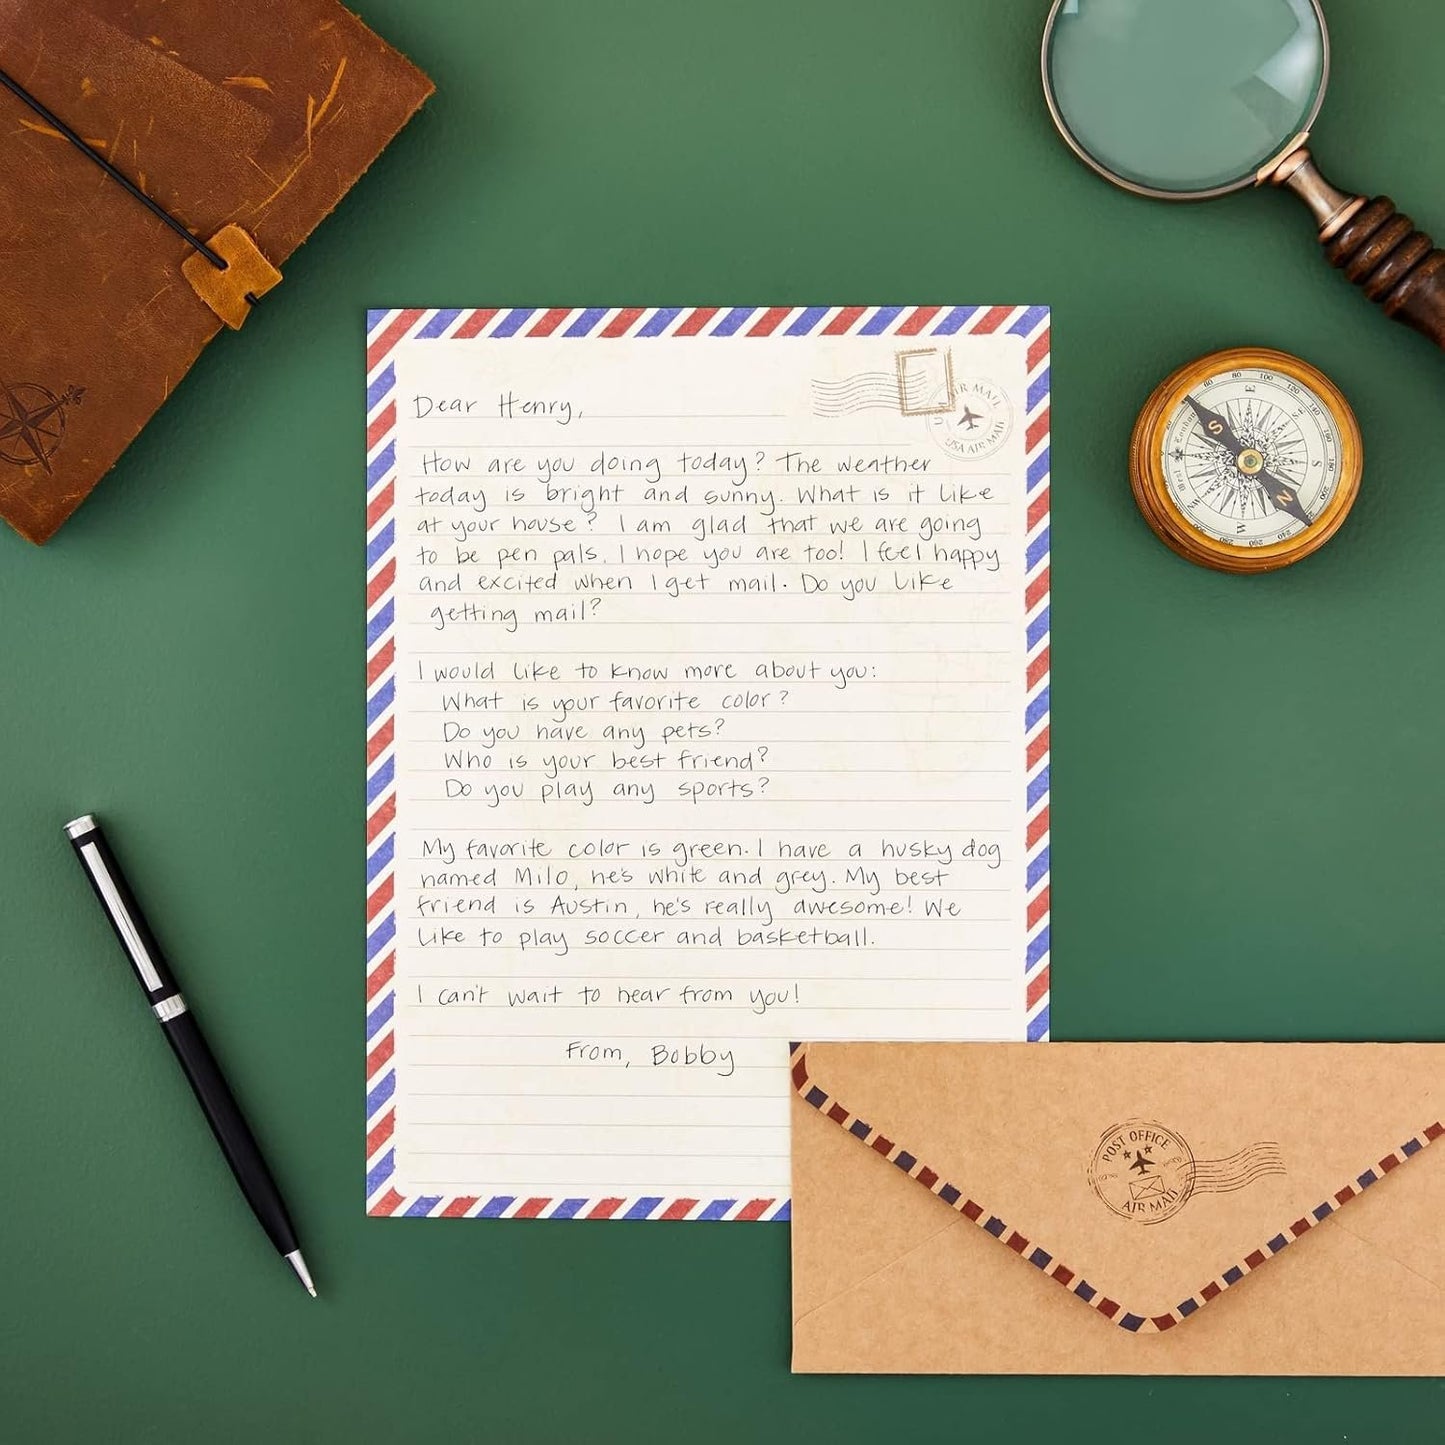 Dear Henry,
AIR MAIL
USA AIR MAIL
How are you doing today? The weather
today is bright and sunny. What is it like
at your house? I am glad that we are going
to be pen pals. I hope you are too! I feel happy
and excited when I get mail. Do you like
getting mail?
I would like to know more about you:
What is your favorite color?
Do you have any pets?
Who is your best friend?
Do you play any sports?
My favorite color is green. I have a husky dog
named Milo, he's white and grey. My best
friend is Austin, he's really awesome! We
like to play soccer and basketball.
I can't wait to hear from you!
From, Bobby
POST OFFICE
AIR MAIL
S
N
E
S
W
80
100
120
140
160
180
200
220
240
260
280
60
London